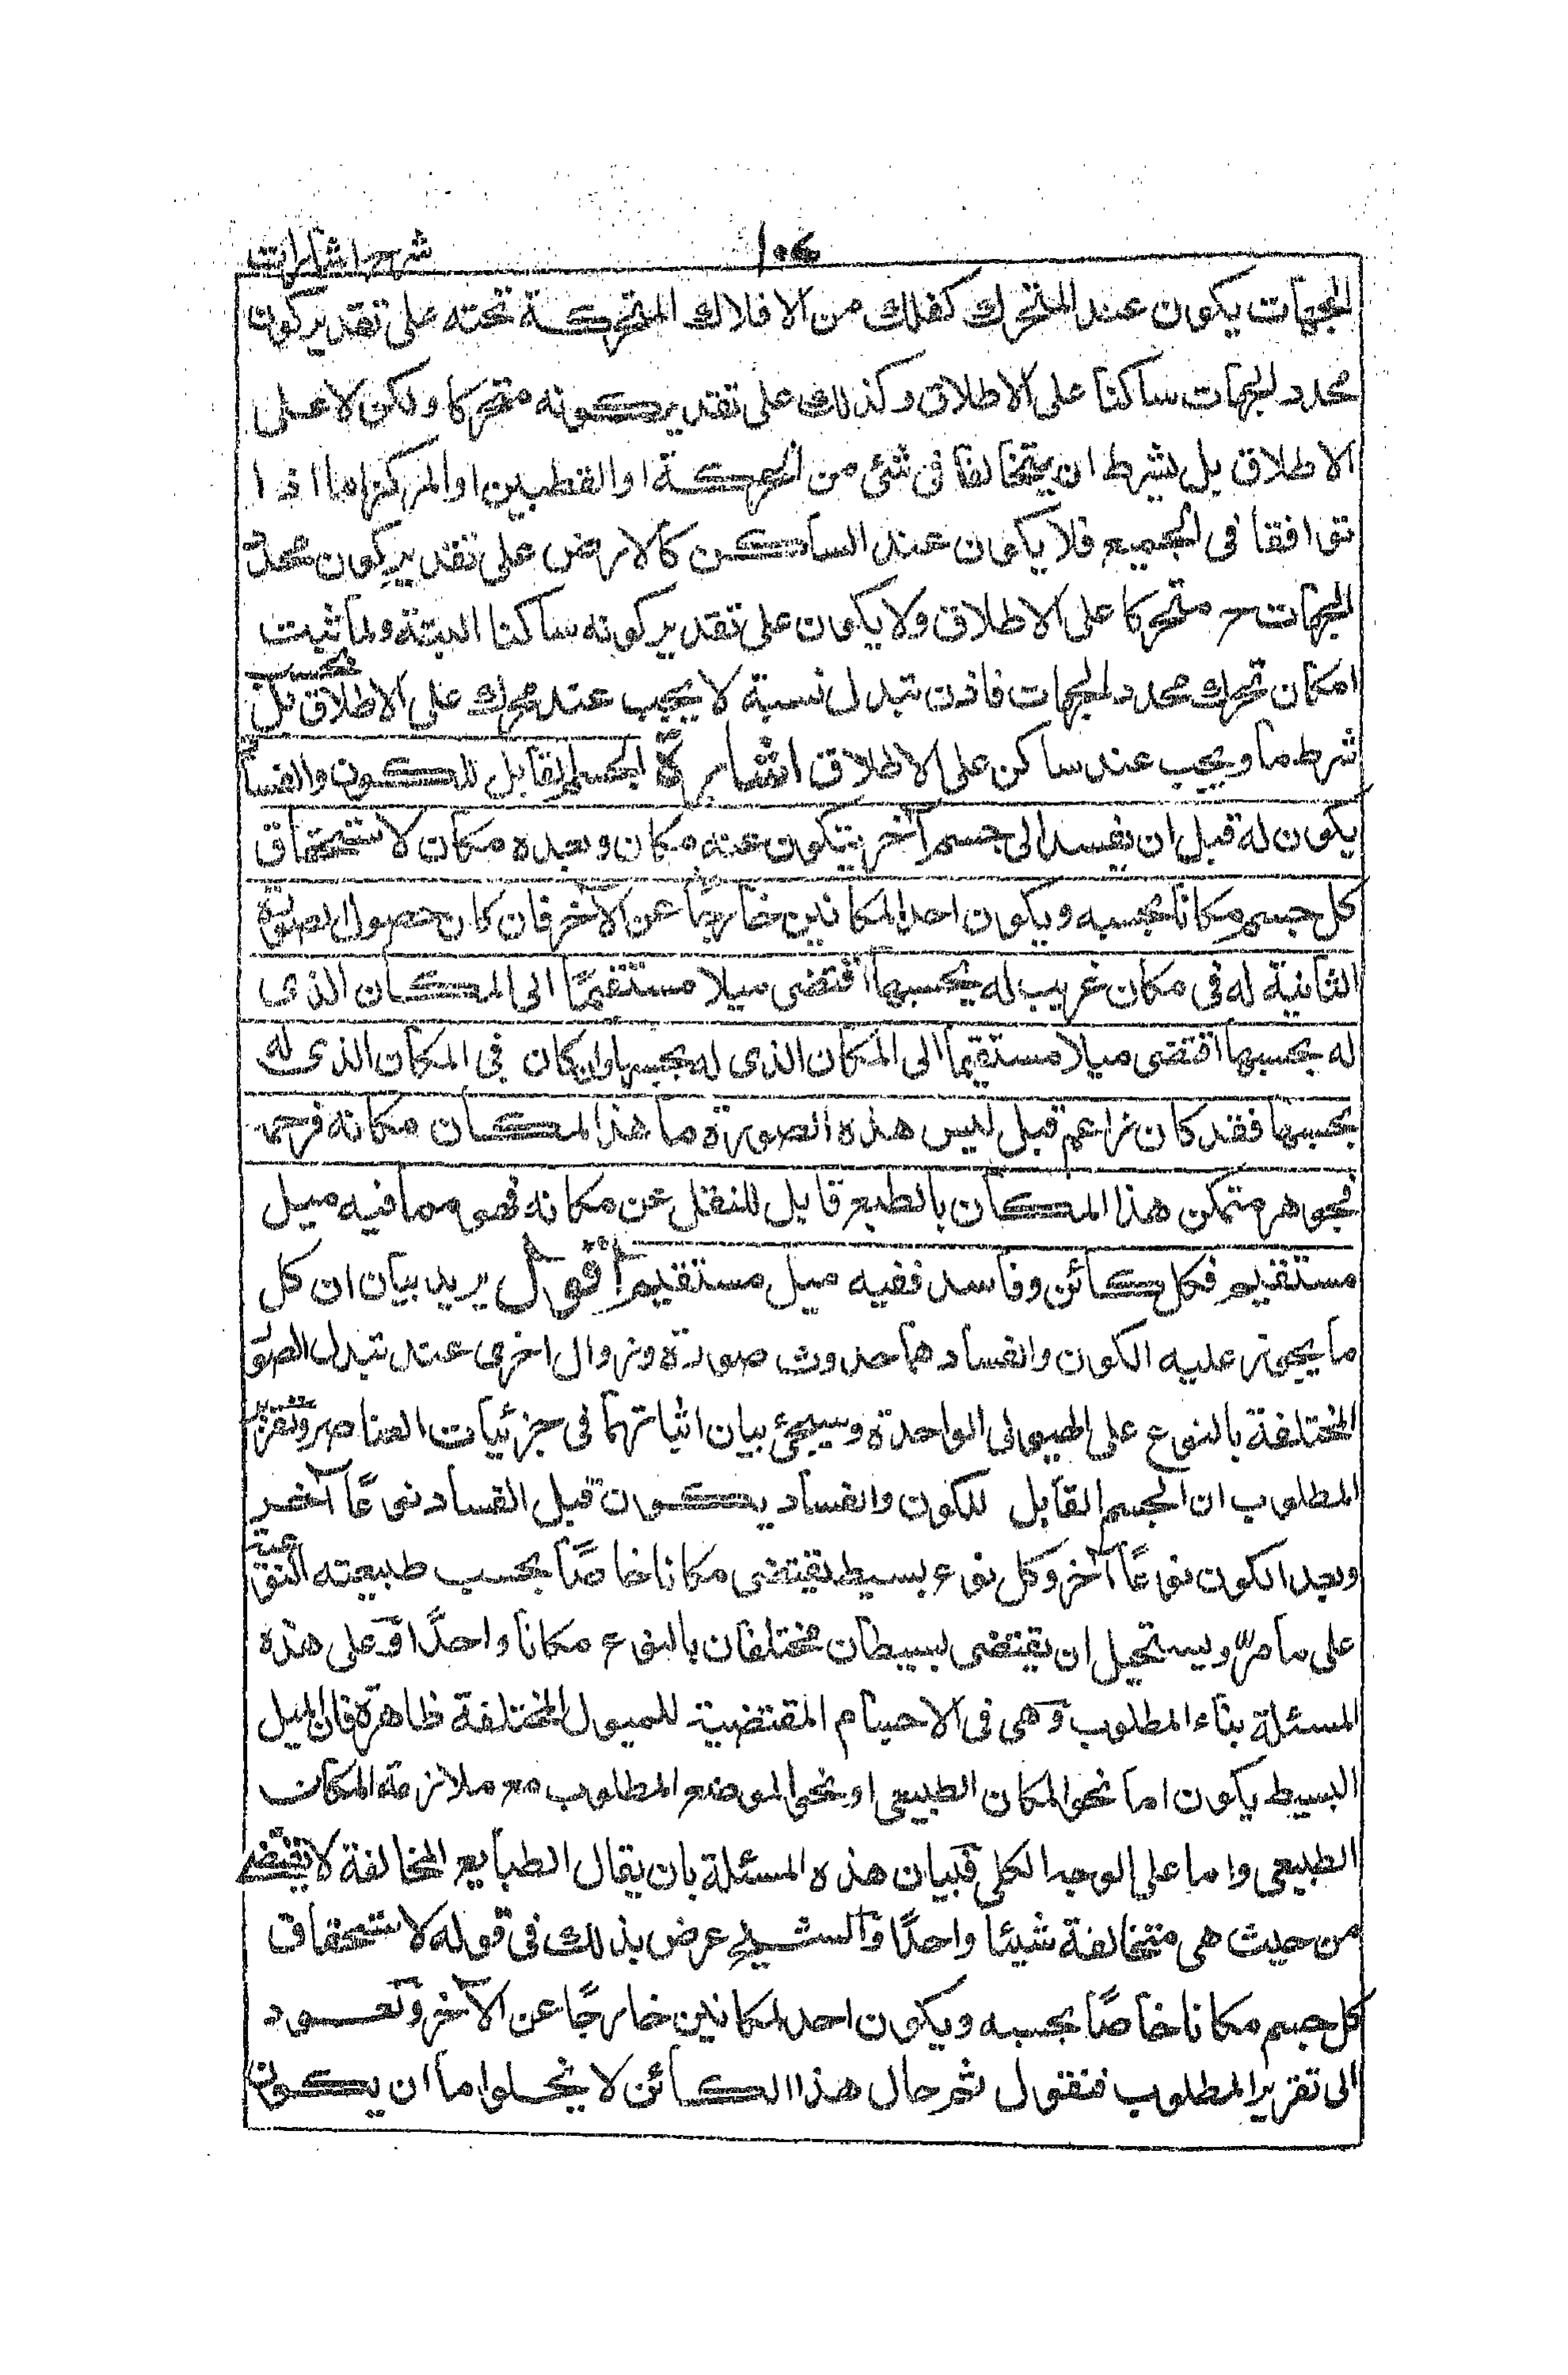 شرح اشارات
الجهات يكون عند المتحرك كفلك من الافلاك المتحركة تحته على تقدير كون
محدد الجهات ساكنا على الاطلاق وكذلك على تقدير كونه متحركا ولكن لا على
الاطلاق بل بشرط ان يتخالفا فى شئ من الحركة او القطبين او المركز اما اذا
توافقا فى الجميع فلا يكون عند الساكن كالارض على تقدير كون محدد
الجهات متحركا على الاطلاق ولا يكون على تقدير كونه ساكنا البتة ولما ثبت
امكان تحرك محدد الجهات فاذن تبدل نسبة لا يجب عند متحرك على الاطلاق بل
شرط ما ويجب عند ساكن على الاطلاق اشارة الجسم القابل للكون والفساد
يكون له قبل ان يفسد الى جسم آخر يتكون عنه مكان وبعده مكان لاستحقاق
كل جسم مكانا بحسبه ويكون احد المكانين خارجًا عن الآخر فان كان حصول الصورة
الثانية له فى مكان غريب له بحسبها اقتضى ميلا مستقيمًا الى المكان الذى
له بحسبها اقتضى ميلا مستقيما الى المكان الذى له بحسبها وان كان فى المكان الذى له
بحسبها فقد كان زاحم قبل لبس هذه الصورة ما هذا المكان مكانه فزحمه
فجوهر متمكن هذا المكان بالطبع قابل للنقل عن مكانه فهو مما فيه ميل
مستقيم فكل كائن وفاسد ففيه ميل مستقيم اقول يريد بيان ان كل
ما يجوز عليه الكون والفساد هما حدوث صورة وزوال اخرى عند تبدل الصور
المختلفة بالنوع على الهيولى الواحدة وسيجئ بيان اثباتهما فى جزئيات العناصر وتقرير
المطلوب ان الجسم القابل للكون والفساد يكون قبل الفساد نوعًا آخر
وبعد الكون نوعًا آخر وكل نوع بسيط يقتضى مكانا خاصًا بحسب طبيعته النوعية
على ما مرّ ويستحيل ان يقتضى بسيطان مختلفان بالنوع مكانا واحدًا وعلى هذه
المسئلة بناء المطلوب وهى فى الاجسام المقتضية للميول المختلفة ظاهرة فان الميل
البسيط يكون اما نحو المكان الطبيعى او نحو الموضع المطلوب مع ملازمة المكان
الطبيعى واما على الوجه الكلى فبيان هذه المسئلة بان يقال الطبايع المخالفة لا يقتضى
من حيث هى متخالفة شيئا واحدًا والشيخ عرض بذلك فى قوله لاستحقاق
كل جسم مكانا خاصًا بحسبه ويكون احد المكانين خارجًا عن الآخر ونعود
الى تقرير المطلوب فنقول ثم حال هذا الكائن لا يخلوا ما ان يكون